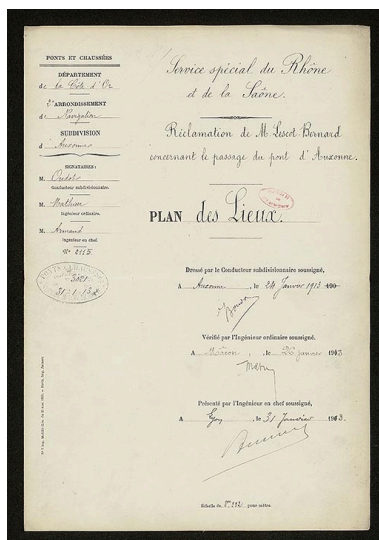 PONTS ET CHAUSSÉES
DÉPARTEMENT
de la Côte d'Or
2e ARRONDISSEMENT
de Navigation
SUBDIVISION
d'Auxonne
SIGNATAIRES :
M.
Conducteur subdivisionnaire.
M. Mathieu
Ingénieur ordinaire.
M. Armand
Ingénieur en chef
No 2115
31-1-13
Service spécial du Rhône
et de la Saône.
Réclamation de M. Lescot-Bernard
concernant le passage du pont d'Auxonne.
PLAN des Lieux.
Dressé par le Conducteur subdivisionnaire soussigné,
A Auxonne, le 24 Janvier 1913 190
Vérifié par l'Ingénieur ordinaire soussigné,
A Mâcon, le 26 janvier 1913
Présenté par l'Ingénieur en chef soussigné,
A Lyon, le 31 Janvier 1913
Echelle de 0m002 pour mètre